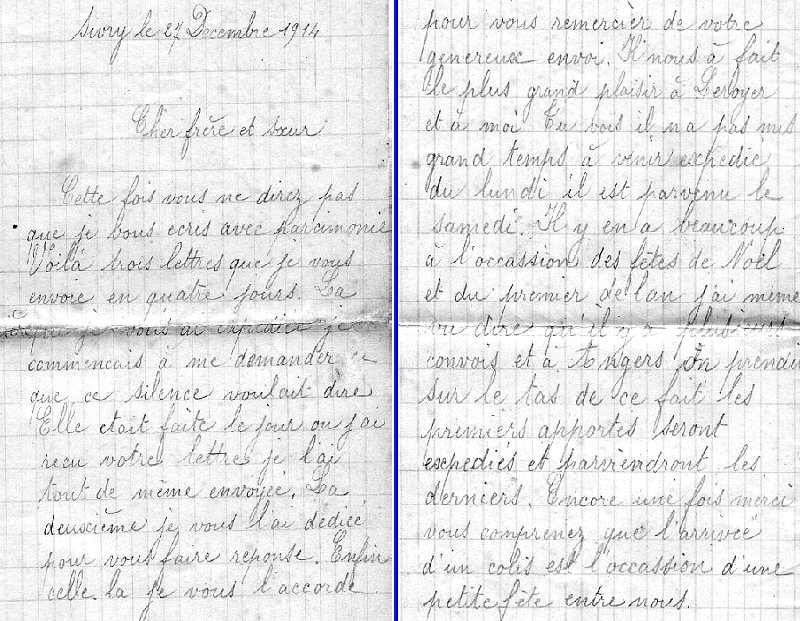 Sivry le 27 Decembre 1914
Cher frère et sœur
Cette fois vous ne direz pas
que je vous ecris avec parcimonie
Voilà trois lettres que je vous
envoie en quatre jours. La
que je vous ai expediée je
commencais à me demander ce
que ce silence voulait dire
Elle etait faite le jour ou j'ai
recu votre lettre je l'ai
tout de même envoyée. La
deuxième je vous l'ai dédiée
pour vous faire reponse. Enfin
celle.la je vous l'accorde
pour vous remercier de votre
genereux envoi. Il nous à fait
le plus grand plaisir à Leroyer
et à moi Tu vois il n a pas mis
grand temps à venir expedié
du lundi il est parvenu le
samedi. Il y en a beaucoup
à l'occassion des fêtes de Noël
et du premier de l'an j'ai meme
vu dire qu'il y a plusieurs
convois et à Angers on prendu
sur le tas de ce fait les
premiers apportés seront
expediés et parviendront les
derniers. Encore une fois merci
vous comprenez que l'arrivée
d'un colis est l'occassion d'une
petite fête entre nous.